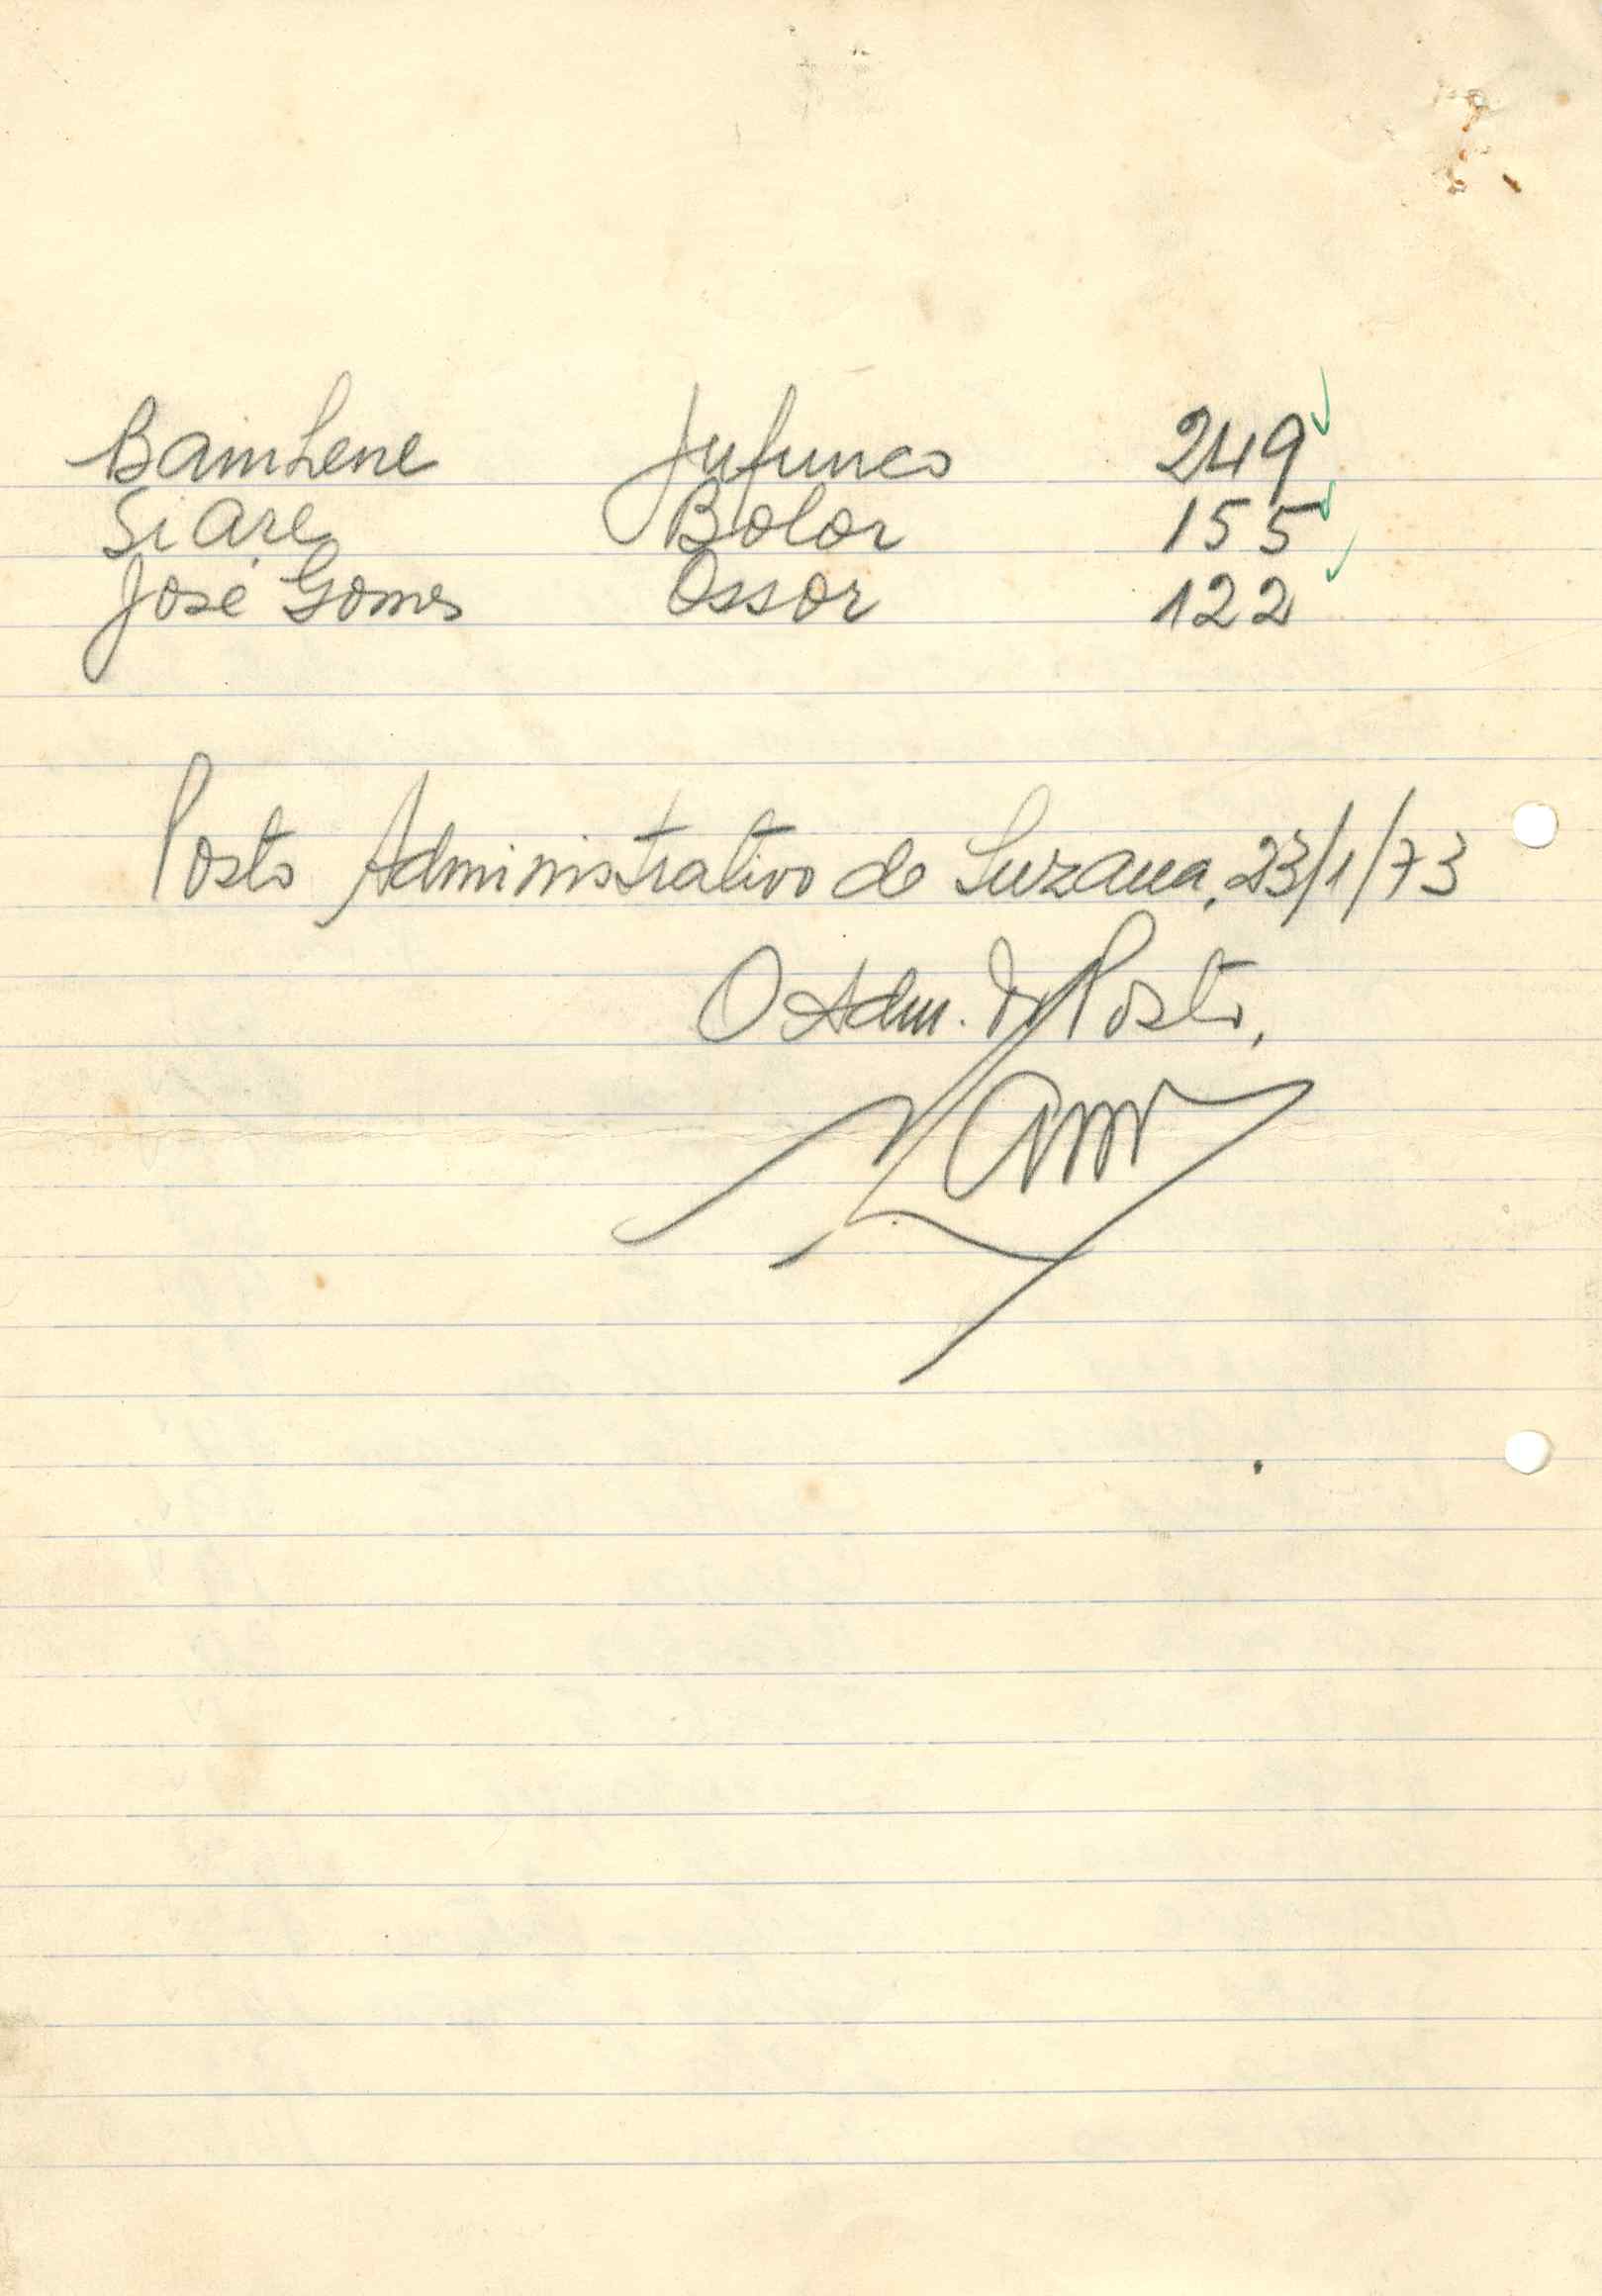 Bamhene Jufunco 249
Siare Bolor 155
José Gomes Ossor 122
Posto Administrativo de Suzana, 23/1/73
O Adm. de Posto,